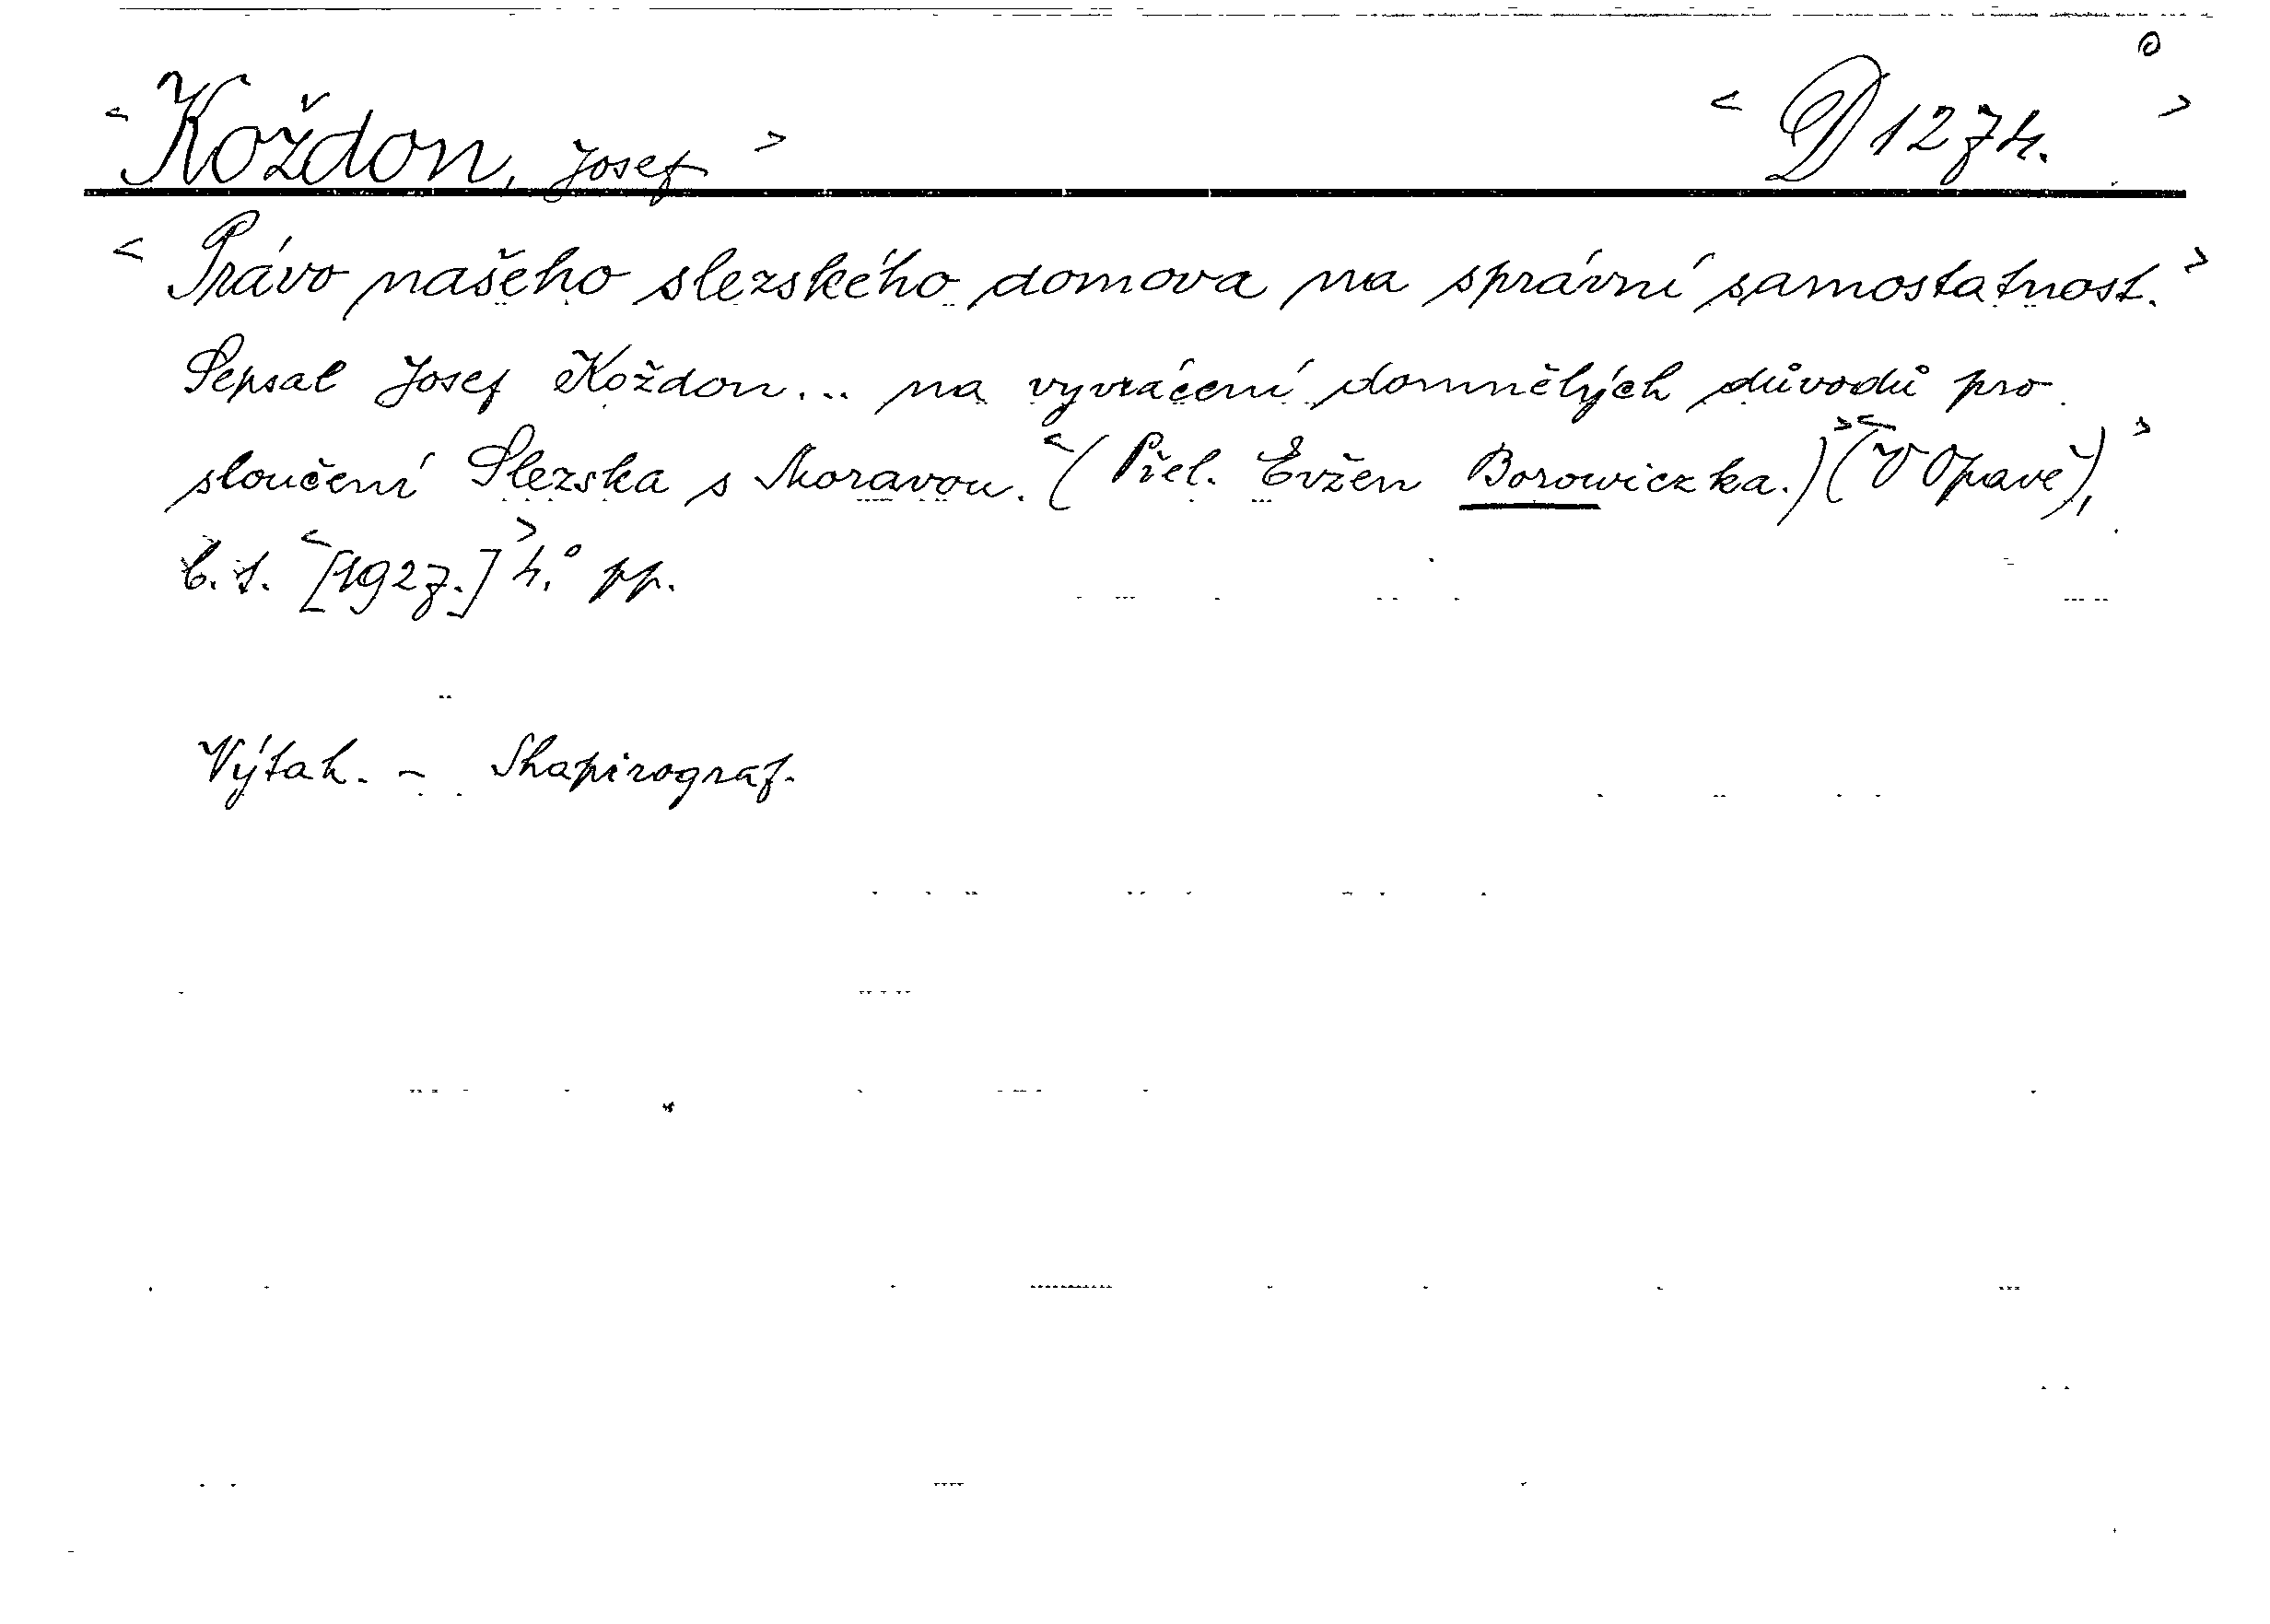 < Koždon, Josef > < D 1274. >
< Právo našeho slezského domova na správní samostatnost. >
Sepsal Josef Koždon... na vyvrácení domnělých důvodů pro
sloučení Slezska s Moravou. < (Přel. Evžen Borowiczka.) > < (V Opavě), >
b. t. < [1927.] > 4.° pp.
Výtah. - Shapirograf.